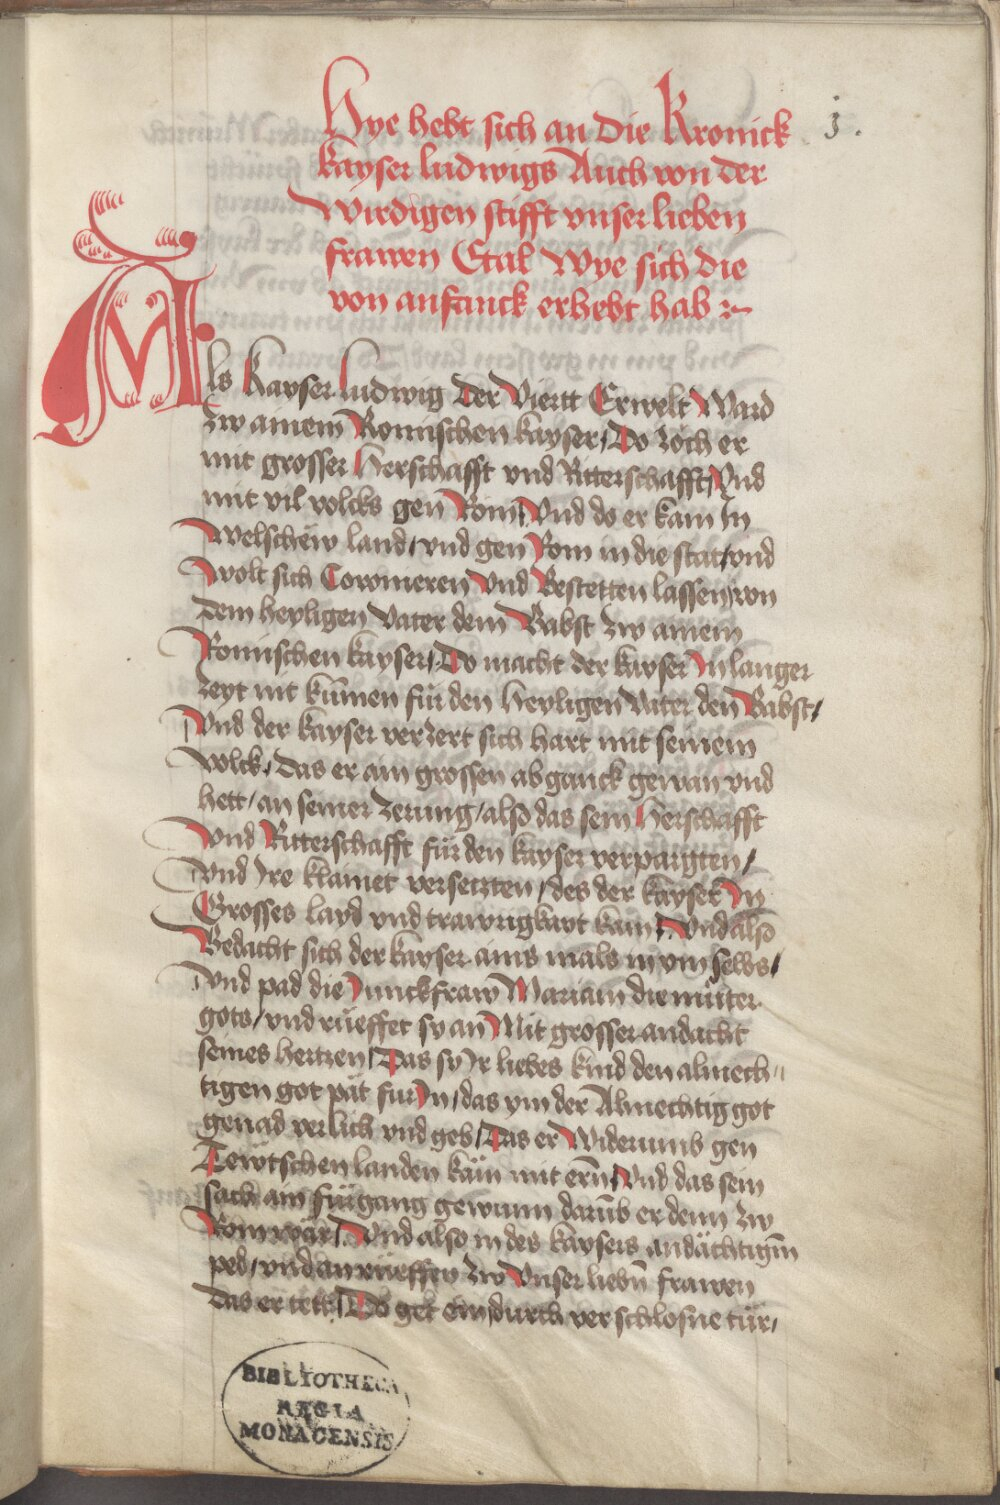 3.
Hye hebt sich an die Kronick
kayser ludwigs Auch von der
Wirdigen stifft vnser lieben
frawen Etal Wye sich die
von anfanck erhebt hab
Als Kayser ludwig Der Viertt Erwelt Ward
zw ainem Romischen kayser / Do zoch er
mit grosser Herschafft vnd Ritterschafft / Vnd
mit vil volcks gen Rom / Vnd do er kam In
Welschew land / vnd gen Rom in die stat / vnd
Wolt sich Coronieren Vnd Bestetten lassen / von
dem heyligen Vater dem Babst zw ainem
Romischen kayser / Do macht der kayser In langer
zeyt nit kumen für den heyligen Vater den Babst /
Vnd der kayser verzert sich hart mit seinem
Volck / das er ain grossen abganck gewan vnd
hett / an seiner zerung / also das sein Herschafft
Vnd Ritterschafft für den kayser verpürgten /
Vnd Ire klainet versetzten / des der kayser In
Grosses layd vnd trawrigkayt kam / Vnd also
Bedacht sich der kayser ains mals in ym selbs /
Vnd pad die Iunckfraw Mariam die muter
gots / vnd rüeffet sy an Mit grosser andacht
seines hertzen / Das sy Ir liebes kind den almech-
tigen got pät fur In / das ym der Almechtig got
genad verlich vnd geb / Das er Widerumb gen
Tewtschen landen käm mit ern / Vnd das sein
sach ain fürgang gewunn darüb er denn zw
Rom wär / Vnd also in des kaysers andächtigm
peb / vnd anrüeffen zw Vnser liebn frawen
das er tett / Do get ein / durch verschlosne tür /
BIBLIOTHECA
REGIA
MONACENSIS